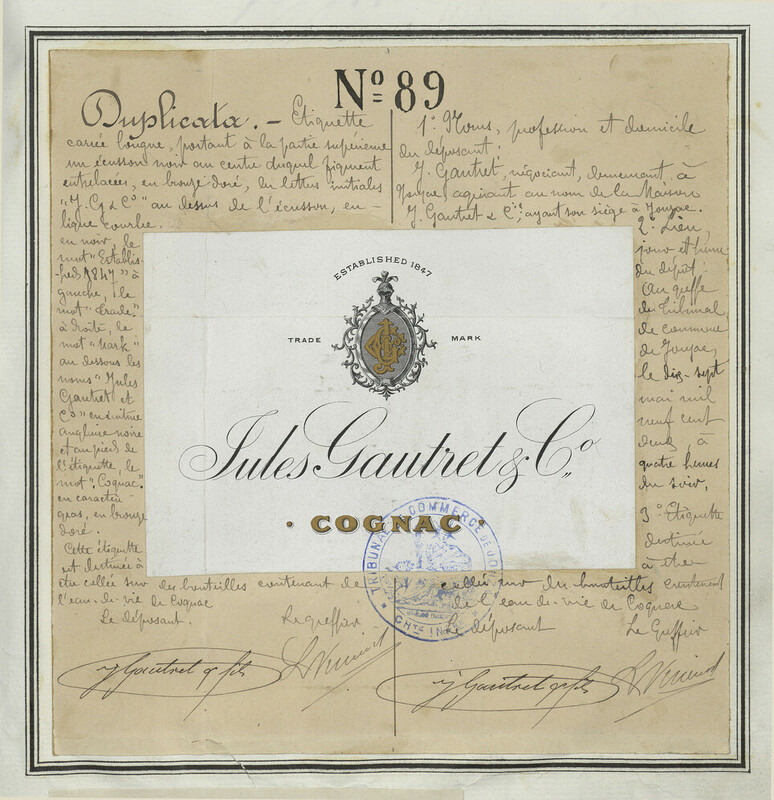 Nº 89
Duplicata. - Etiquette
carrée longue, portant à la partie supérieure
un écusson noir au centre duquel figurent
entrelacées, en bronze doré, les lettres initiales
"J. G & Cº" au dessus de l'écusson, en
ligne courbe
en noir, le
mot "Establis-
hed 1847" à
gauche, le
mot "Trade"
à droite, le
mot "Mark"
au dessous les
noms "Jules
Gautret et
Cº" en écriture
anglaise noire
et au pied de
l'étiquette, le
mot "Cognac"
en caractères
gras, en bronze
doré.
Cette étiquette
est destinée à
être collée sur des bouteilles contenant de
l'eau-de-vie de Cognac
Le déposant. Le greffier
J Gautret & fils
1º Noms, profession et domicile
du déposant:
J. Gautret, négociant, demeurant à
Jonzac, agissant au nom de la Maison
J. Gautret & Cie, ayant son siège à Jonzac.
2º Lieu,
jour et heure
du dépôt.
Au greffe
du Tribunal
de commerce
de Jonzac,
le dix-sept
mai mil
neuf cent
deux, à
quatre heures
du soir,
3º Etiquette
destinée
à être
collée sur des bouteilles contenant
de l'eau-de-vie de Cognac
Le déposant Le Greffier
J Gautret & fils
ESTABLISHED 1847
TRADE MARK
Jules Gautret & Cº
COGNAC
TRIBUNAL DE COMMERCE DE JONZAC
CHTE INFRE